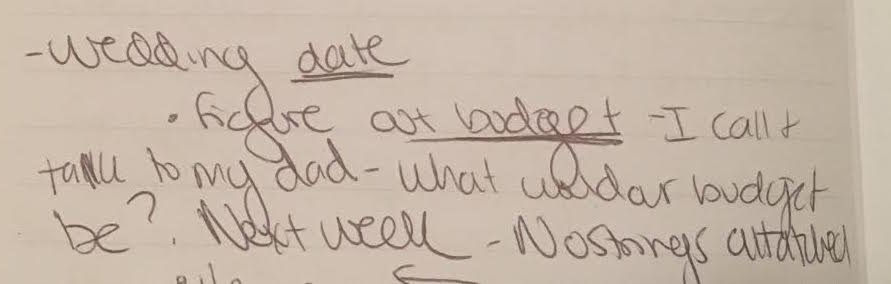 -Wedding date
• Figure out budget - I call +
talk to my dad - What would our budget
be?. Next week - No strings attatched